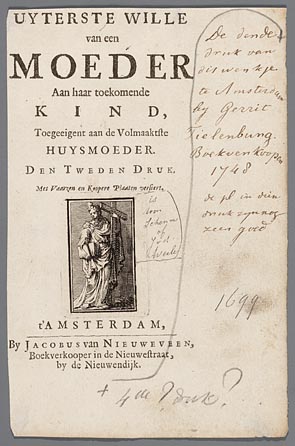 UYTERSTE WILLE
van een
MOEDER
Aan haar toekomende
KIND,
Toegeeigent aan de Volmaaktste
HUYSMOEDER.
DEN TWEDEN DRUK.
Met Vaarzen en Koopere Plaaten verciert.
t'AMSTERDAM,
By JACOBUS van NIEUWEVEEN,
Boekverkooper in de Nieuwestraat,
by de Nieuwendijk.
De derde
druk van
dit werkje
te Amsterdam
by Gerrit
Tielenburg
Boekverkooper
1748
de pl in dien
druk zijn nog
zeer goed
is
door
of
1699
+ 4de ? druk?